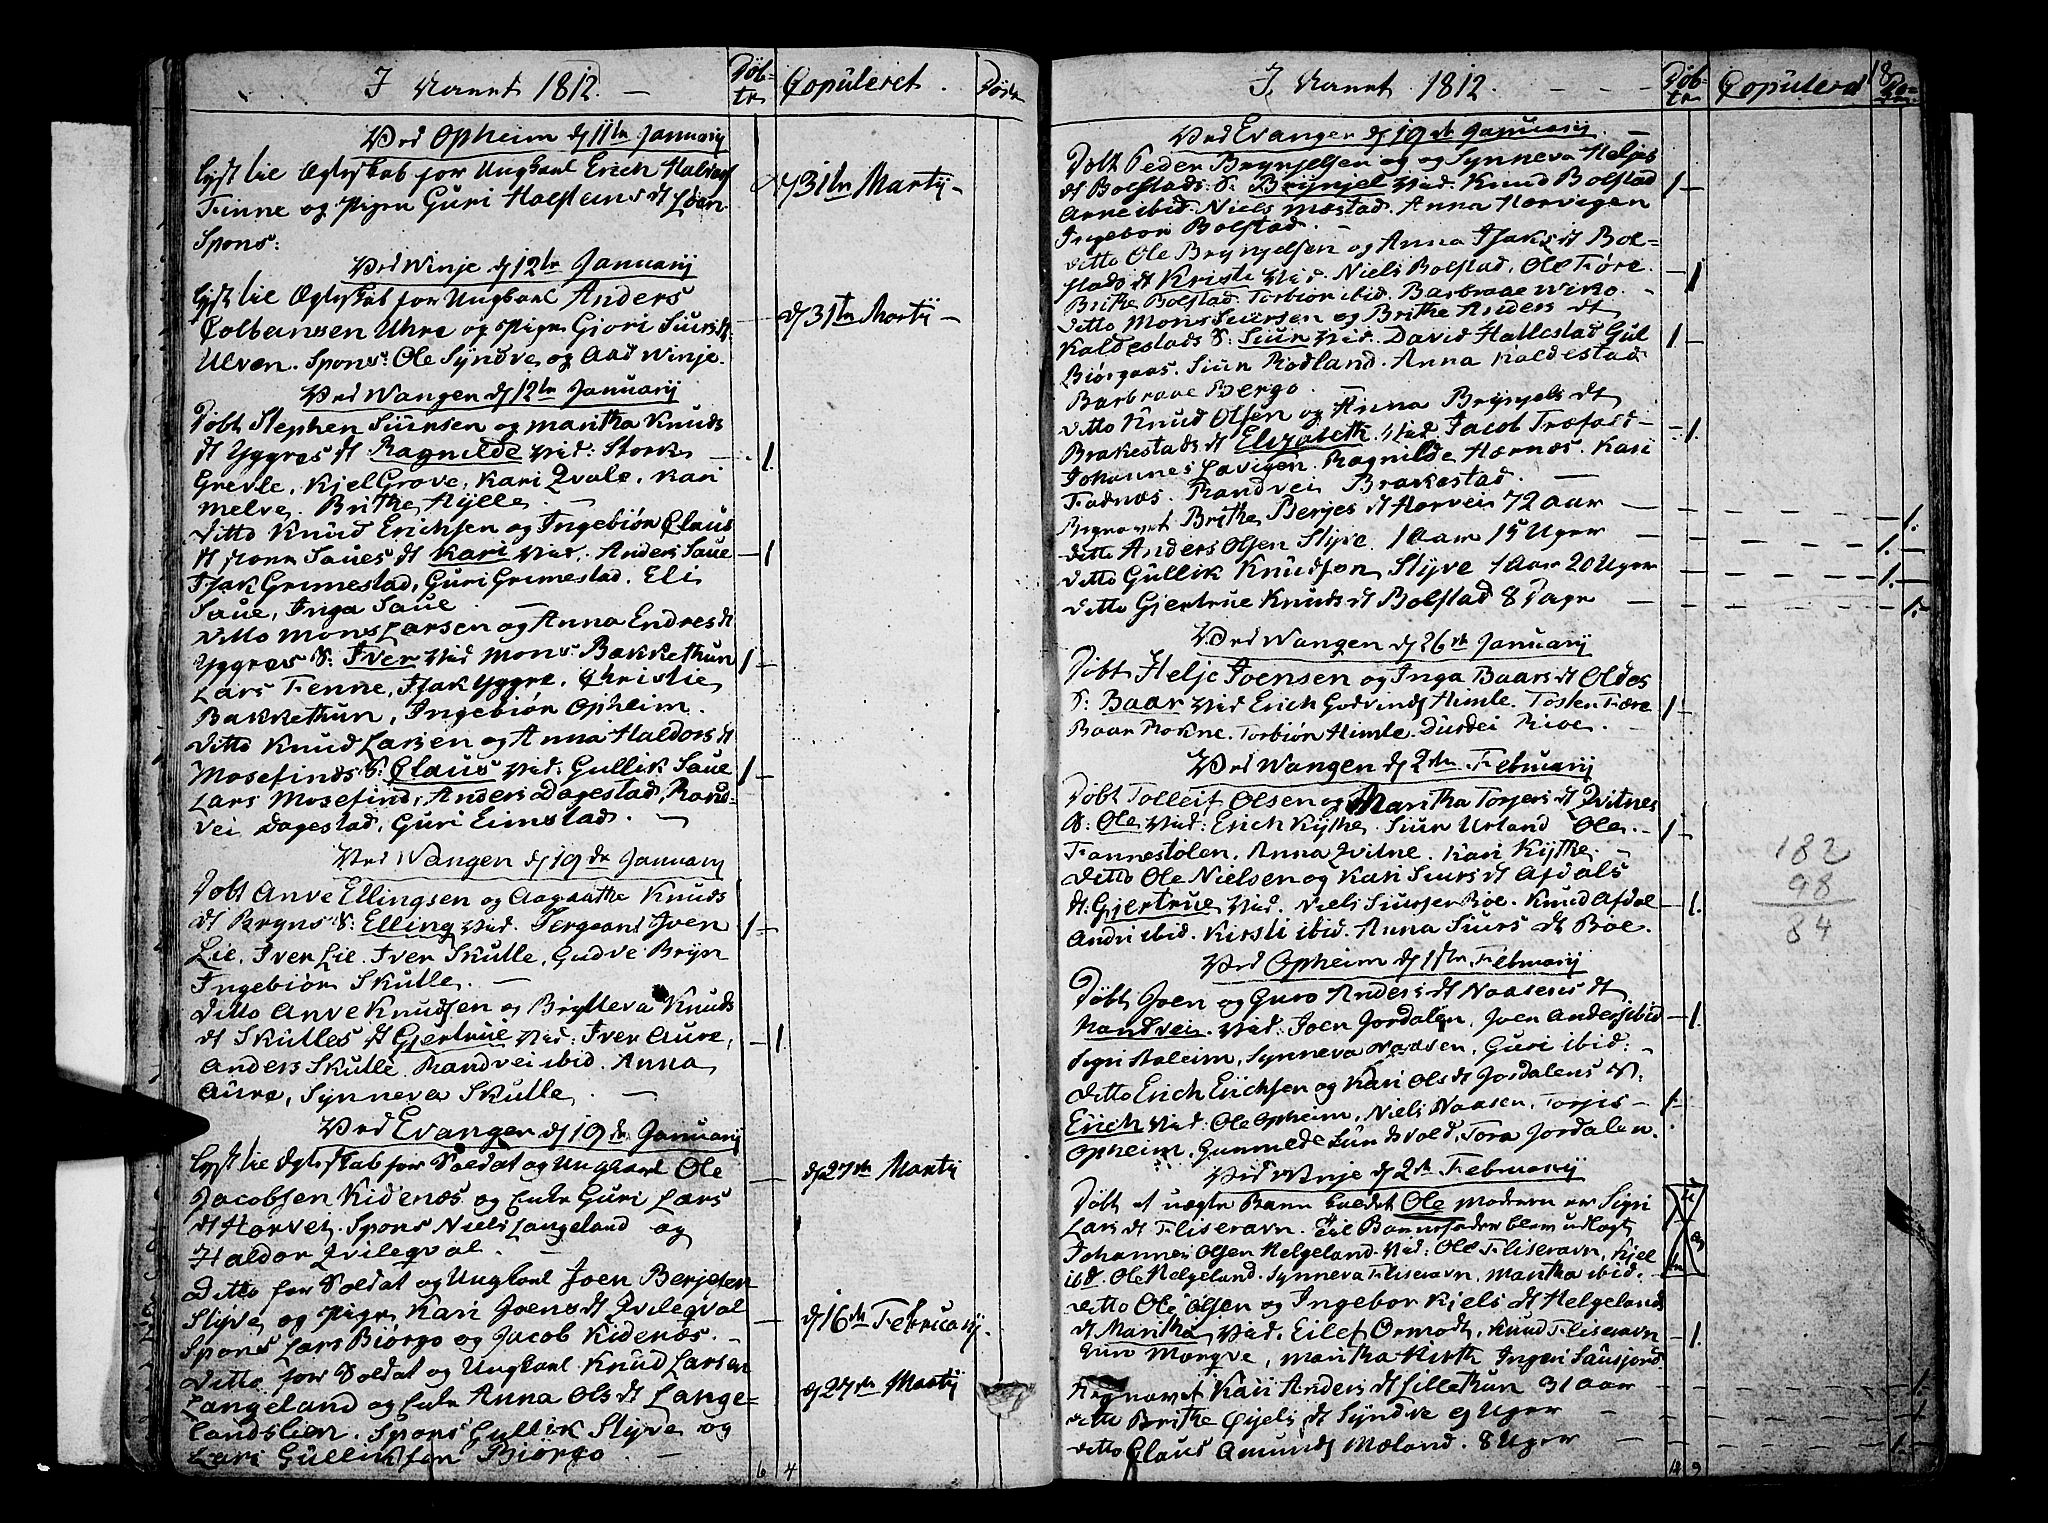 I Aaret 1812. Döb-te Copuleret. Döde
Ved Opheim d 11te Januarij
lyst til Ægteskab for Ungkarl Erich Haldors
Finne og Pigen Guri Halsteins dt Løen d 31te Martij
Spons:
Ved Winje d 12te Januarij
lyst til Ægteskab for Ungkarl Anders
Colbensen Uhre og Pige Giori Siurs dt d 31te Martij
Ulven. Spons: Ole Syndve og Aad Winje.
Ved Wangen d 12te Januarij
Døbt Stephen Siursen og Maritha Knuds
dt Yggres dt Ragnilde Vid: Stork 1
Grevle, Kjel Grove, Kari Qvale, Kari
Melve. Brithe Hylle
Ditto Knud Erichsen og Ingebiør Claus
dt Saues dt Kari Vid. Anders Saue 1
Isak Grimestad, Guri Grimestad. Eli
Saue, Inga Saue
Ditto Mons Larsen og Anna Endres dt
Yggres S: Iver Vid Mons Bakkethun 1
Lars Tenne, Isak Yggre. Christie
Bakkethun, Ingebiør Opheim.
Ditto Knud Larsen og Anna Haldors dt
Mosefinds S: Claus Vid: Gullik Saue 1
Lars Mosefind, Anders Dagestad, Rand-
vei Dagestad, Guri Eimstad.
Ved Wangen d 19de Januarij
Døbt Anve Ellingsen og Aagaathe Knuds
dt Bryns S: Elling Vid. Sergeant Joen 1
Lie. Iver Lie. Iver Skulle, Gudve Bryn
Ingebiør Skulle.
Ditto Anve Knudsen og Brytteva Knuds
dt Skulles dt Gjertrue Vid: Iver Aure, 1
Anders Skulle Randvei ibid. Anna
Aure, Synneva Skulle
Ved Evanger d 19de Januarij
lyst til Ægteskab for Soldat og Ungkarl Ole d 27de Martij
Jacobsen Kidenæs og Enke Guri Lars
dt Horvei. Spons Niels Langeland og
Haldor Qvileqval.
Ditto for Soldat og Ungkarl Joen Berjesen
Styve og Pige Kari Joens dt Qvileqval d 16de Februarij
Spons Lars Biørgo og Jacob Kidenæs.
Ditto for Soldat og Ungkarl Knud Larsen
Langeland og Enke Anna Ols dt Lange- d 27de Martij
landslien. Spons Gullik Styve og
Lars Gulliksen Biørgo
6 4
I Aaret 1812. Döb-te Copulered 18 Dö-de
Ved Evanger d 19de Januarij
Døbt Peder Brynjelsen og Synneva Heljes
dt Bolstads S: Brynjel Vid. Knud Bolstad 1
Arne ibid. Niels Mestad. Anna Horvigen
Ingebor Bolstad.
Ditto Ole Brynjelsen og Anna Isaks dt Bol-
stads dt Kristi Vid. Niels Bolstad, Ole Føre 1
Brithe Bolstad. Torbiør ibid. Barbraae Wiko.
Ditto Mons Siversen og Brithe Anders dt
Kaldestads S: Siur Vid. David Hallestad Gul 1
Biørgaas. Siur Rodland. Anna Kaldestad
Barbraae Bergo.
Ditto Knud Olsen og Anna Brynjels dt
Brakestads dt Elizabeth Vid Jacob Træfald 1.
Johannes Lavigen. Ragnilde Hernæs. Kari
Fadnæs. Randvei Brakestad.
Begravet Brithe Berjes dt Horvei 72 aar 1.
ditto Anders Olsen Styve 1 aar 15 Uger 1.
ditto Gullik Knudsen Styve 1 aar 20 Uger 1.
ditto Gjertrue Knuds dt Bolstad 8 Dage 1.
Ved Wangen d 26de Januarij
Døbt Helje Joensen og Inga Baars dt Oldes
S: Baar Vid Erich Godvinds Himle. Tosten Fære 1
Baar Rokne. Torbiør Himle. Durdei Rioe.
Ved Wangen d 2den Februarij
Døbt Tolleif Olsen og Maritha Torjers dt Qvitnes
S: Ole Vid: Erich Kythe. Siur Urland Ole 1
Fannestølen. Anna Qvitne. Kari Kythe.
Ditto Ole Nielsen og Kari Siurs dt Afdals
dt Gjertrue Vid. Niels Siursen Bøe. Knud Afdal 1.
Andri ibid. Kirsti ibid. Anna Siurs dt Bøe.
182
98
84
Ved Opheim d 1ste Februarij
Døbt Joen og Guro Anders dt Naasens dt
Randvei. Vid: Joen Jordalen, Joen Anders ibid 1.
Sygri Staleim, Synneva Naasen, Guri ibid:
Ditto Erich Erichsen og Kari Ols dt Jordalens S:
Erich Vid. Ole Opheim, Niels Naasen, Torjis 1
Opheim. Gunnilde Sundsvold, Tora Jordalen.
Ved Winje d 2de Februarij
Døbt et uægte Barn kaldet Ole Moderen er Sigri
Lars dt Fliseravn. Til Barnefader blev udlagt
Johannes Olsen Helgeland. Vid: Ole Fliseravn, Kjel
ibid. Ole Helgeland. Synneva Fliseravn, Maritha ibid.
Ditto Ole Olsen og Ingebor Kjels dt Helgelands
dt Maritha Vid. Eilef Ormodt, Knud Fliseravn 1.
Morqve, Maritha Hirth Ingeri Sausjord
Begravet Kari Anders dt Lillethun 31 aar 1.
ditto Brithe dt Syndve 9 Uger 1
ditto Claus Amunds Mæland. 8 Uger 1.
12 9